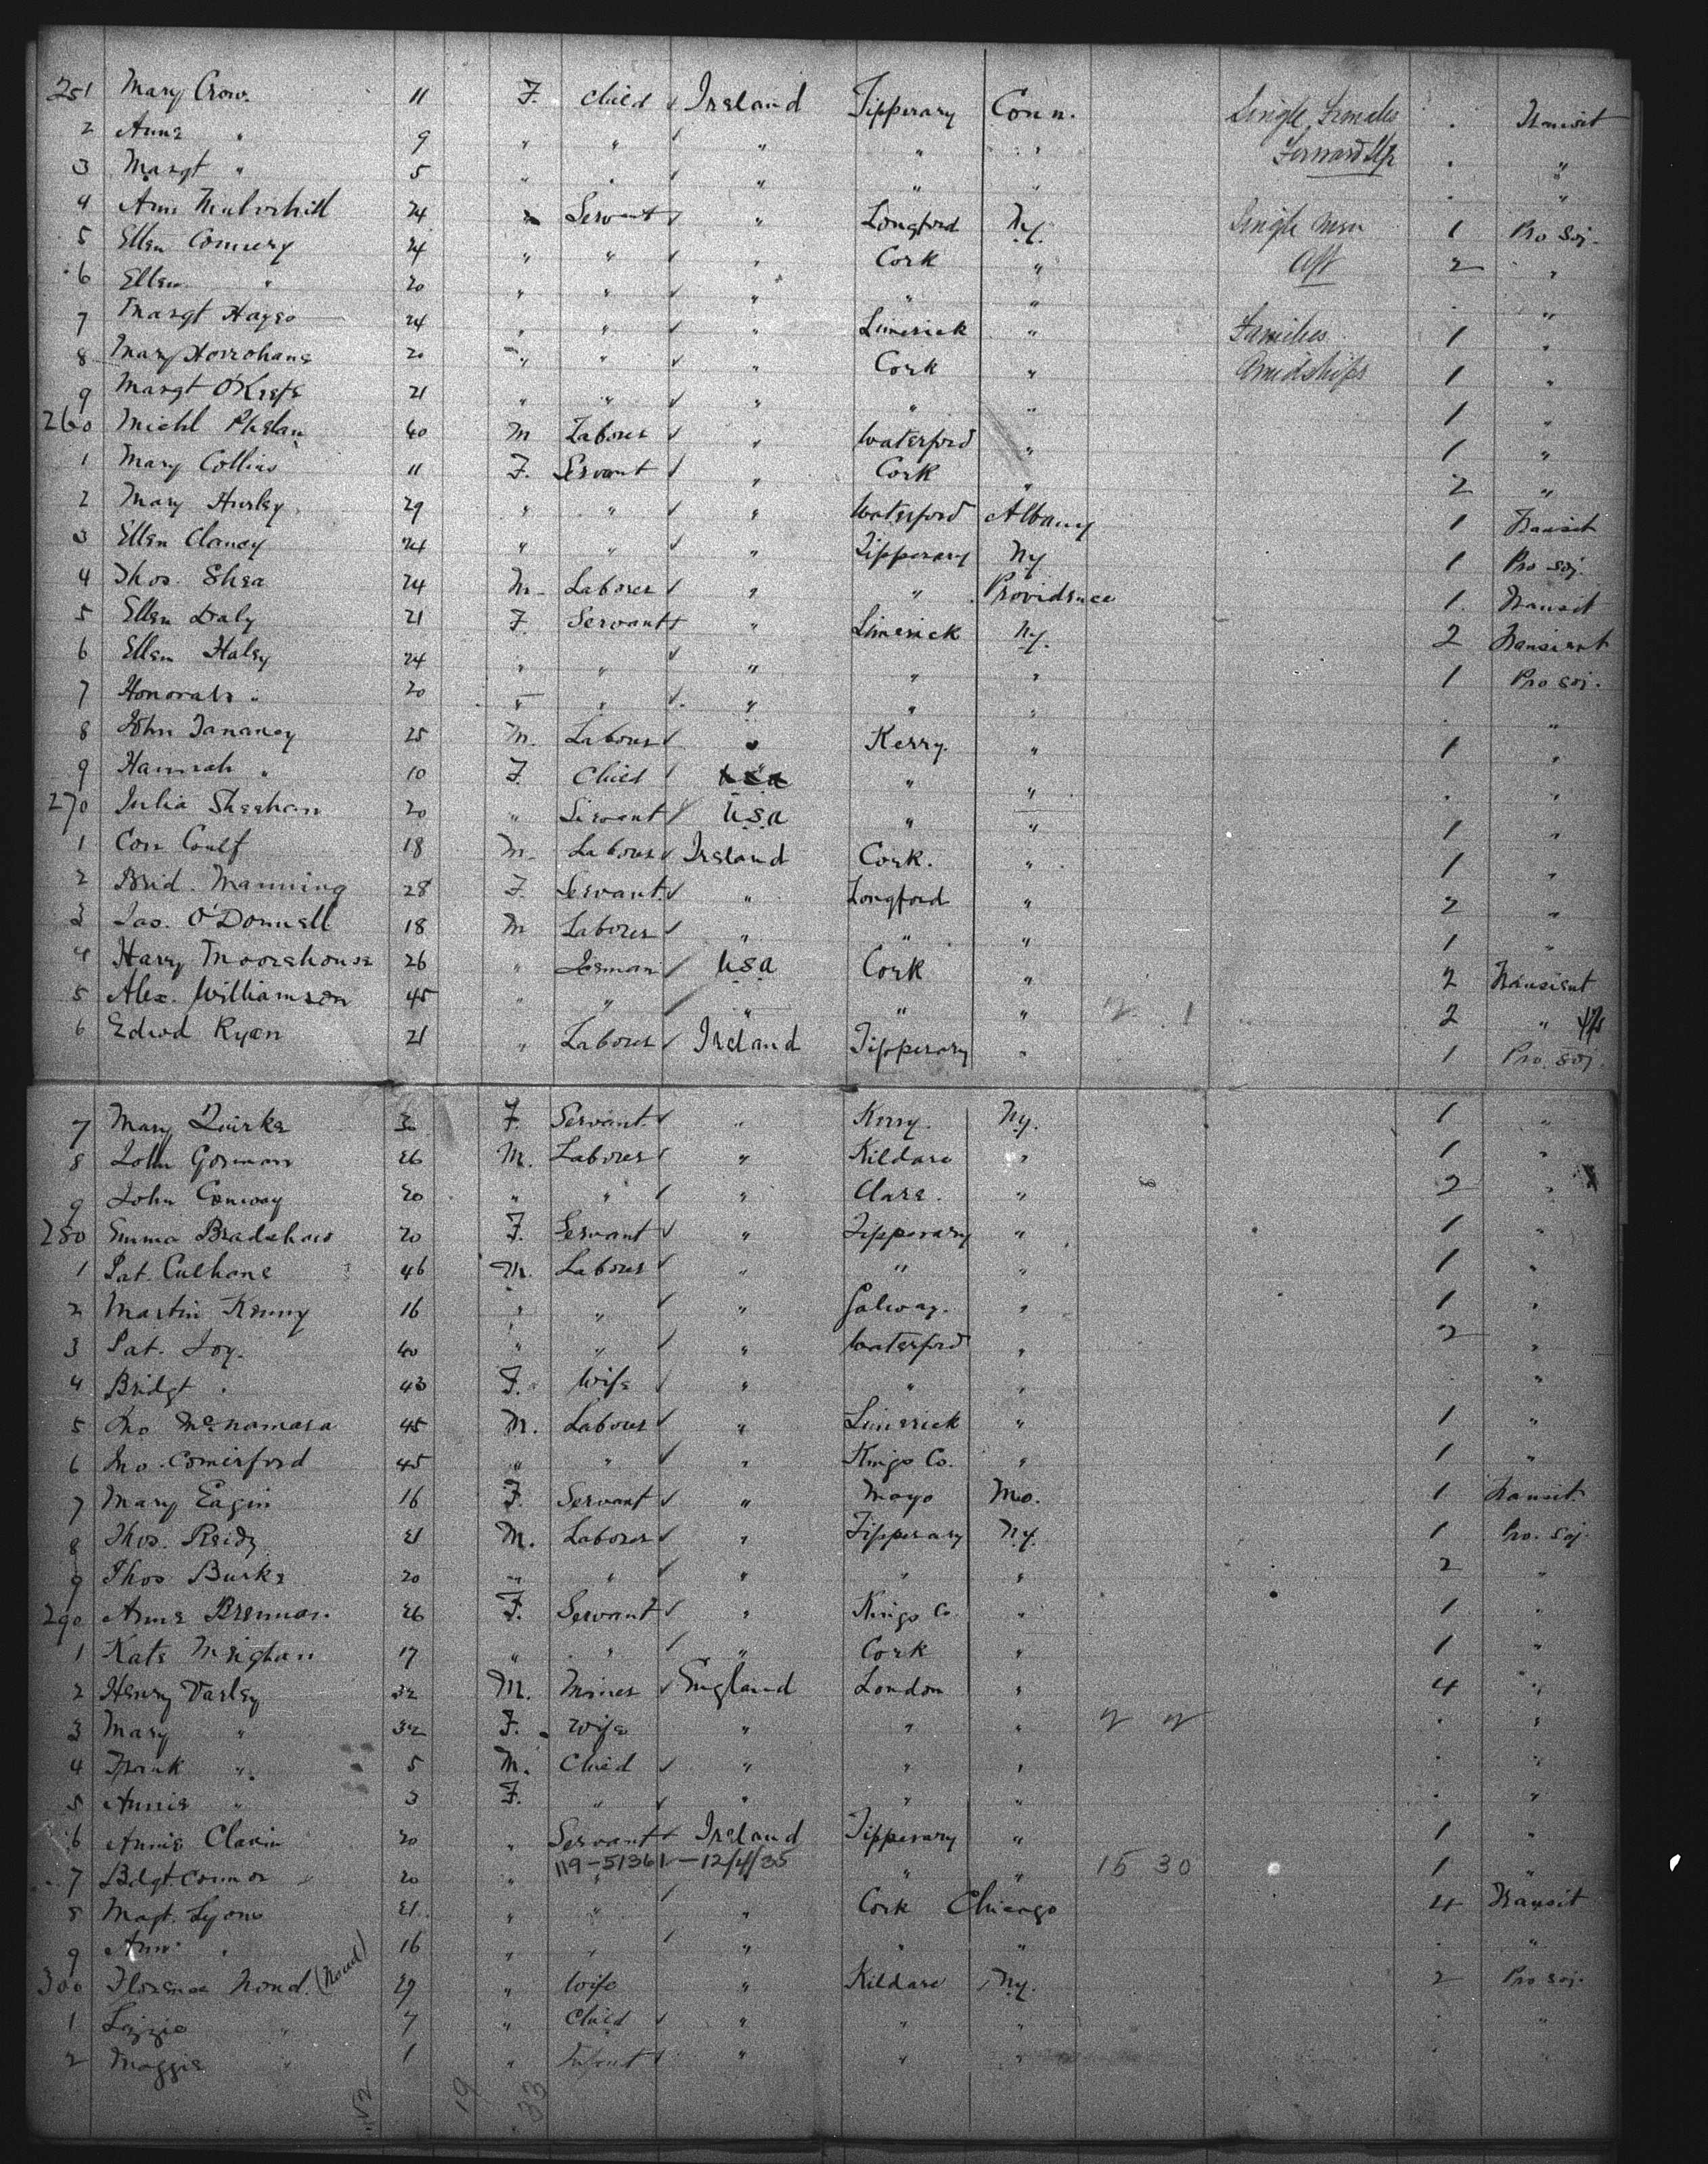 251 Mary Crow. 11 F. Child ✓ Ireland Tipperary Conn. Single Females . Transit
2 Anne " 9 " " ✓ " " " Forward Str . "
3 Margt " 5 " " ✓ " " " . "
4 Ann Mulvihill 24 " Servant ✓ " Longford Ny. Single men 1 Pro Soj.
5 Ellen Connery 24 " " ✓ " Cork " Aft 2 "
6 Ellen " 20 " " ✓ " " " . "
7 Margt Hayes 24 " " ✓ " Limerick " Families 1 "
8 Mary Horrohane 20 " " ✓ " Cork " Amidships 1 "
9 Margt O'Keefe 21 " " ✓ " " " 1 "
260 Michl Phelan 40 M Laborer ✓ " Waterford " 1 "
1 Mary Collins 11 F. Servant ✓ " Cork " 2 "
2 Mary Hurley 29 " " ✓ " Waterford Albany 1 Transit
3 Ellen Clancy 24 " " ✓ " Tipperary Ny 1 Pro soj.
4 Thos. Shea 24 M. Laborer ✓ " " Providence 1. Transit
5 Ellen Daly 21 F. Servant ✓ " Limerick Ny. 2 Transient
6 Ellen Haley 24 " " ✓ " " " 1 Pro soj.
7 Honorah " 20 " " ✓ " " " . "
8 John Tananey 25 M. Laborer ✓ " Kerry. " 1 "
9 Hannah " 10 F. Child ✓ " " " . "
270 Julia Sheehan 20 " Servant ✓ U.S.a " " 1 "
1 Con Coulf 18 M. Laborer ✓ Ireland Cork. " 1 "
2 Brid. Manning 28 F. Servant ✓ " Longford " 2 "
3 Jas. O'Donnell 18 M Laborer ✓ " " " 1 "
4 Harry Moorehouse 26 " ✓ U.S.a Cork " 2 Transient
5 Alex. Williamson 45 " " ✓ " " " 2 "
6 Edwd Ryan 21 " Laborer ✓ Ireland Tipperary " 1 Pro. soj.
7 Mary Quirke 30 F. Servant ✓ " Kerry. Ny. 1 "
8 John Gorman 26 M. Laborer ✓ " Kildare " 1 "
9 John Conway 20 " " ✓ " Clare. " 2 "
280 Emma Bradshaw 20 F. Servant ✓ " Tipperary " 1 "
1 Pat. Culhane 46 M. Laborer ✓ " " " 1 "
2 Martin Kenny 16 " " ✓ " Galway. " 1 "
3 Pat. Joy. 40 " " ✓ " Waterford " 2 "
4 Bridgt " 43 F. Wife ✓ " " " . "
5 Jno McNamara 45 M. Laborer ✓ " Limerick " 1 "
6 Jno. Comerford 45 " " ✓ " Kings Co. " 1 "
7 Mary Eagin 16 F. Servant ✓ " Mayo Mo. 1 Transit.
8 Thos. Reidy 21 M. Laborer ✓ " Tipperary Ny. 1 Pro. soj.
9 Thos Burke 20 " " ✓ " " " 2 "
290 Anne Brennan. 26 F. Servant ✓ " Kings Co " 1 "
1 Kate Meighan 17 " " ✓ " Cork " 1 "
2 Henry Varley 32 M. Miner ✓ England London " 4 "
3 Mary " 32 F. Wife " " " . "
4 Frank " 5 M. Child ✓ " " " . "
5 Annie " 3 F. " ✓ " " " . "
6 Annie Clavin 20 " Servant ✓ Ireland Tipperary " 1 "
119-51361-12/4/35
7 Bdgt Connor 20 " " " " 15 30 1 "
8 Magt. Lyons 21 " " ✓ " Cork Chicago 4 Transit
9 Ann " 16 " " ✓ " " " . "
300 Florence Noud. (Noud) 29 " Wife " Kildare Ny. 2 Pro soj.
1 Lizzie " 7 " Child ✓ " " " . "
2 Maggie " 1 " Infant ✓ " " "
19 33